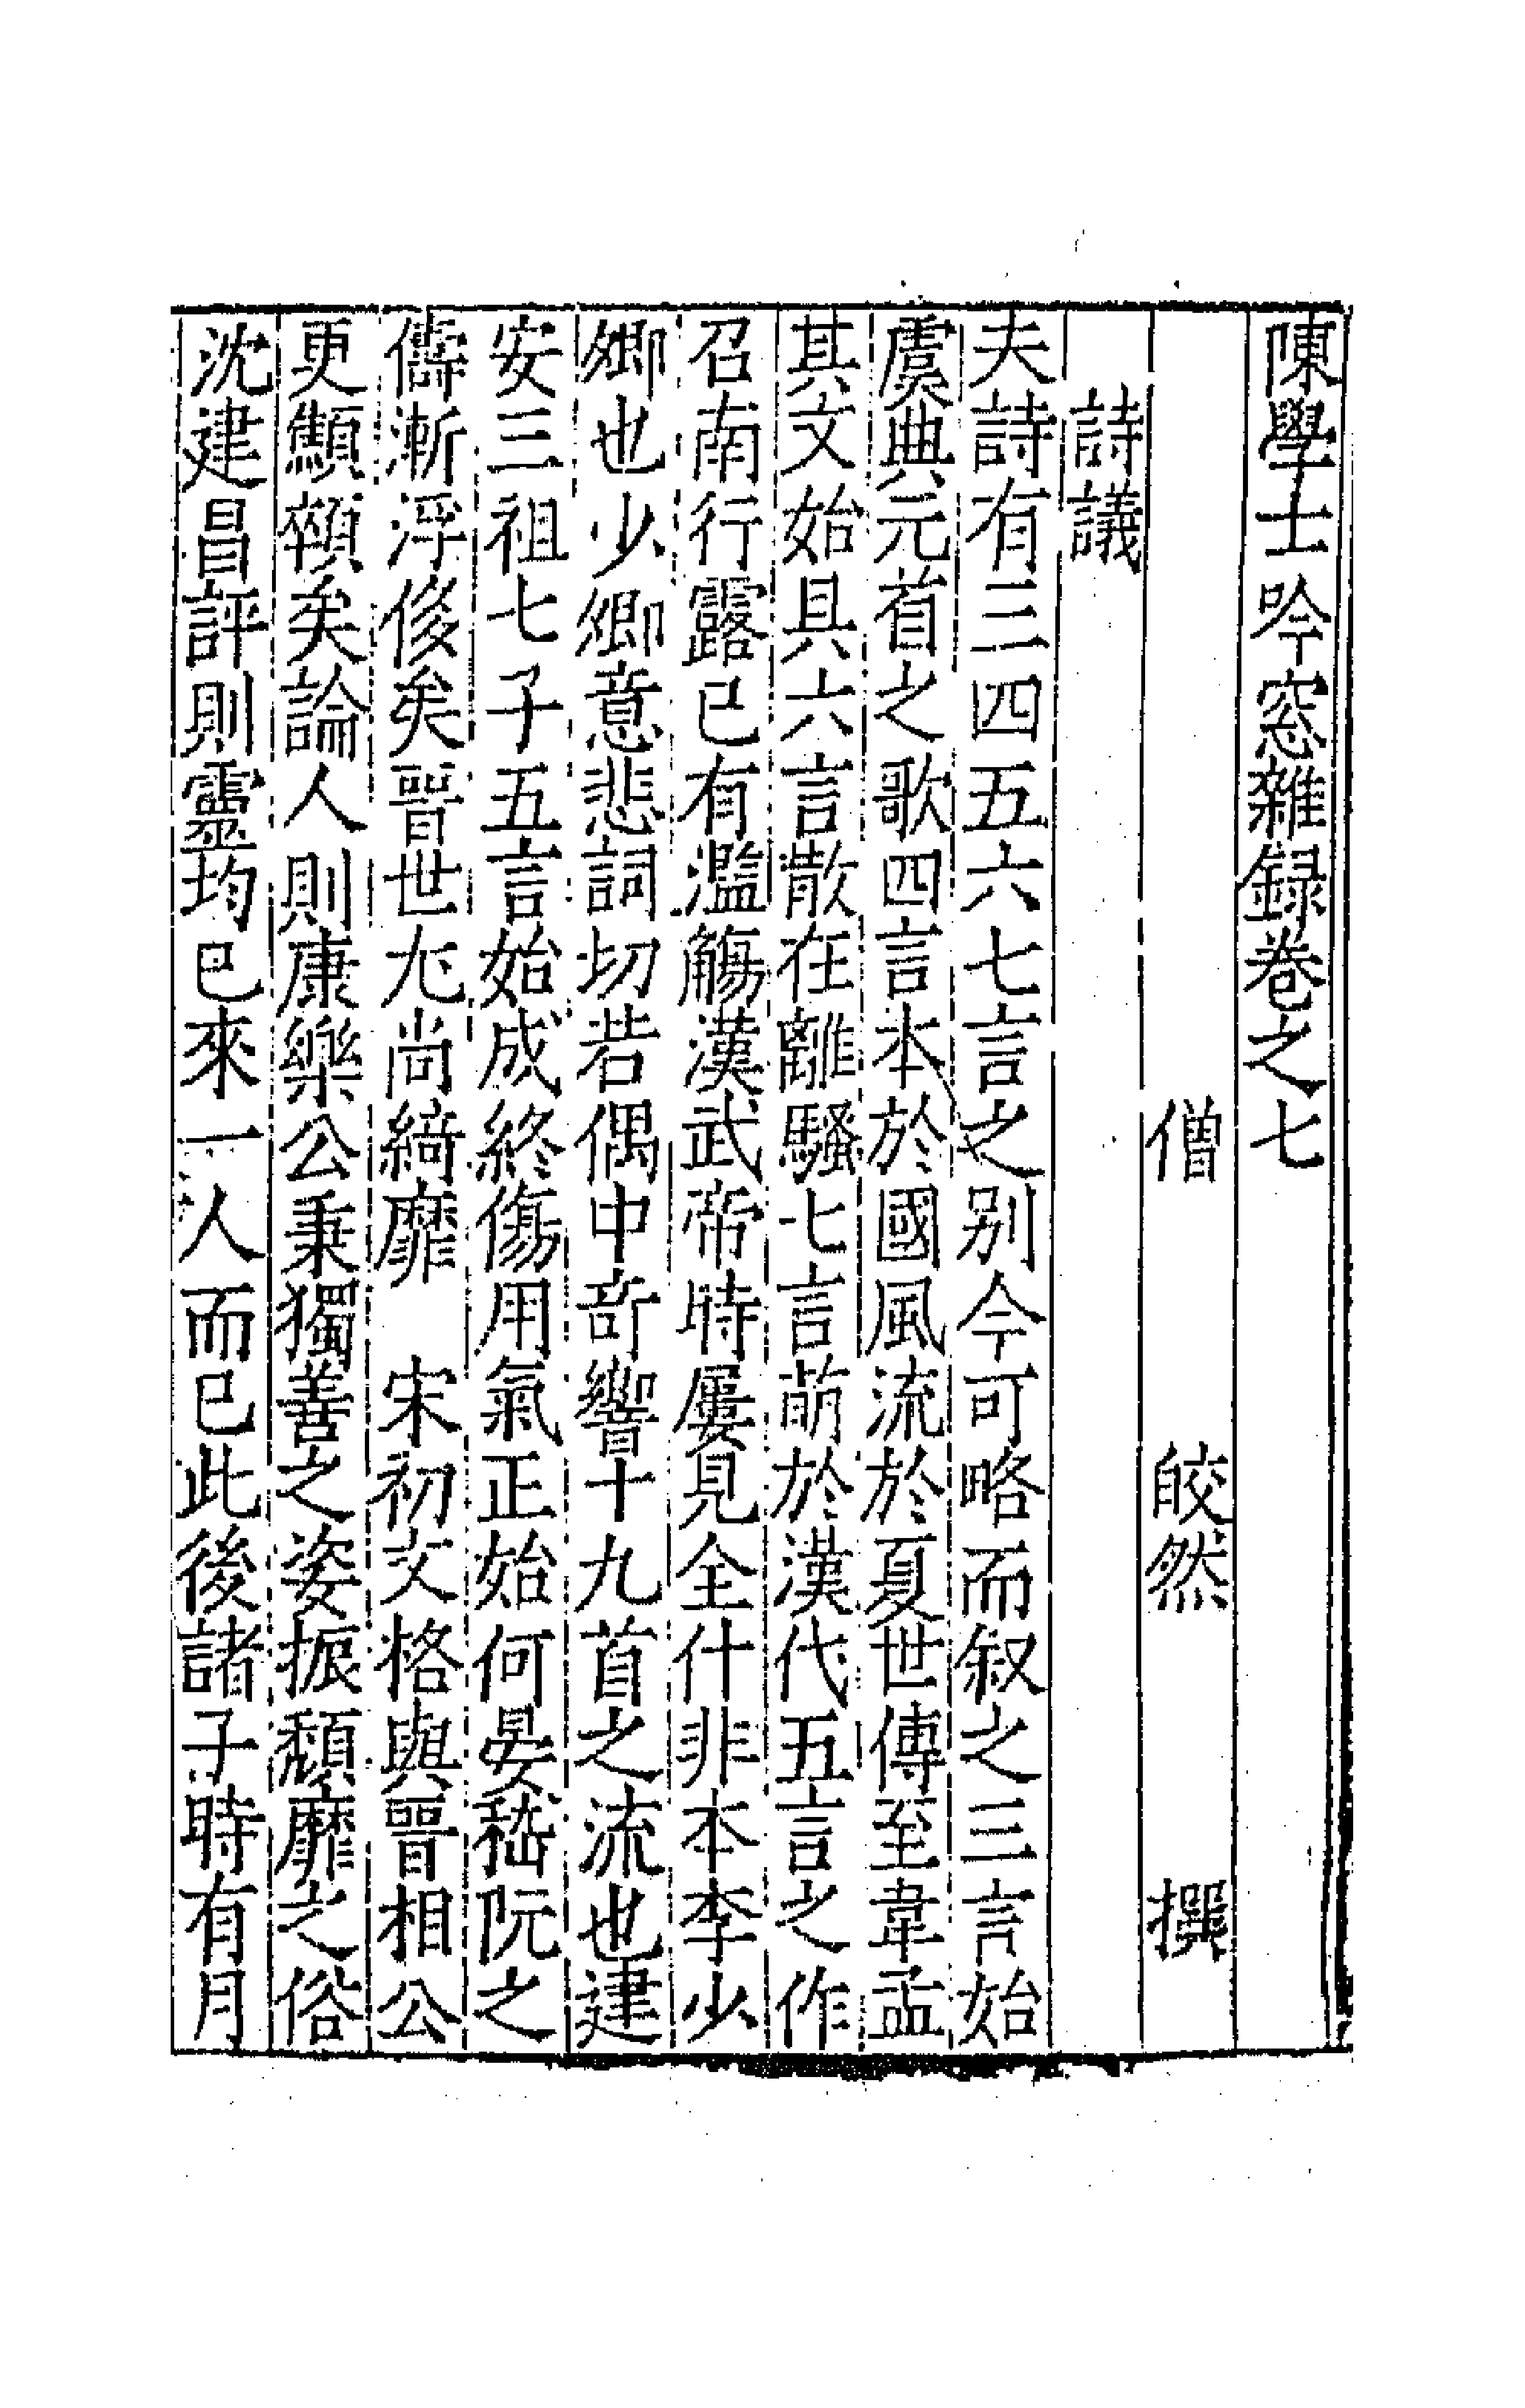 陳學士吟窓雜録卷之七
僧 皎然 撰
詩議
夫詩有三四五六七言之别今可略而叙之三言始
虞典元首之歌四言本於國風流於夏世傳至韋孟
其文始具六言散在離騷七言萌於漢代五言之作
召南行露已有濫觴漢武帝時屢見全什非本李少
卿也少卿意悲詞切若偶中奇響十九首之流也建
安三祖七子五言始成終傷用氣正始何晏嵇阮之
儔漸浮侈矣晉世尤尚綺靡 宋初文格與晉相公
更顦顇矣論人則康樂公秉獨善之姿振頹靡之俗
沈建昌評則靈均已來一人而已此後諸子時有月